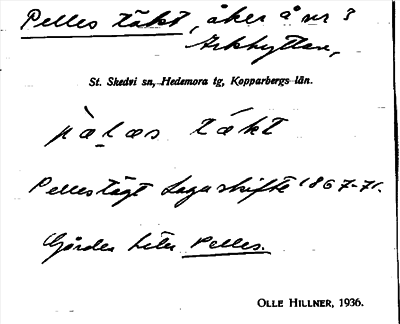 Pelles täkt, åker å nr 3
Arkhyttan,
St. Skedvi sn, Hedemora tg, Kopparbergs län.
pàlas tákt
Pellestägt Lagaskifte 1867-71.
Gården heter Pelles.
OLLE HILLNER, 1936.